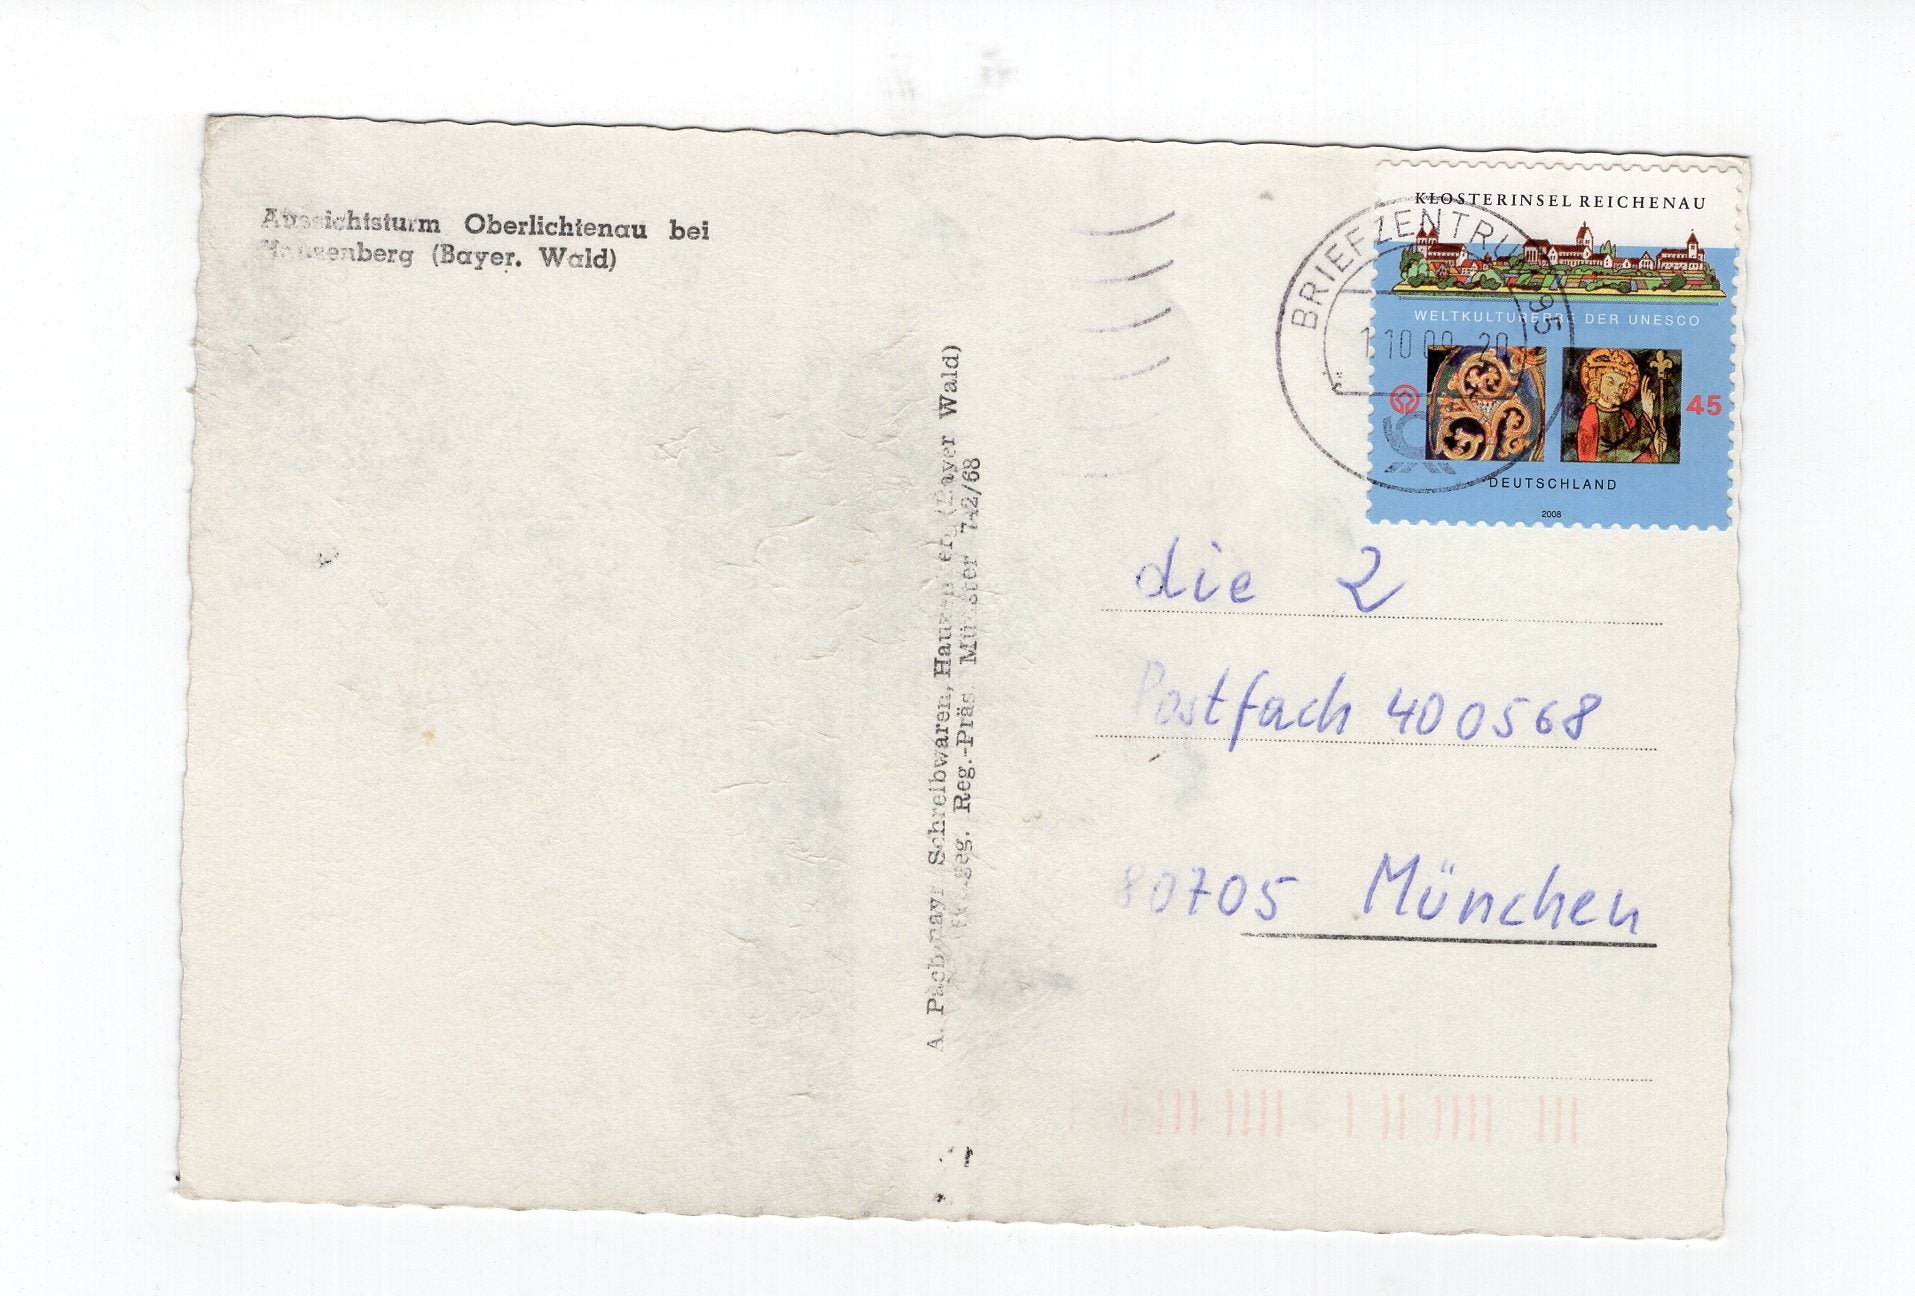 Aussichtsturm Oberlichtenau bei
Hauzenberg (Bayer. Wald)
A. Schreibwaren, Hauzenberg (Bayer Wald)
Reg.-Präs. Münster 742/68
KLOSTERINSEL REICHENAU
WELTKULTURERBE DER UNESCO
45
DEUTSCHLAND
2008
BRIEFZENTRUM 95
die 2
Postfach 400568
80705 München